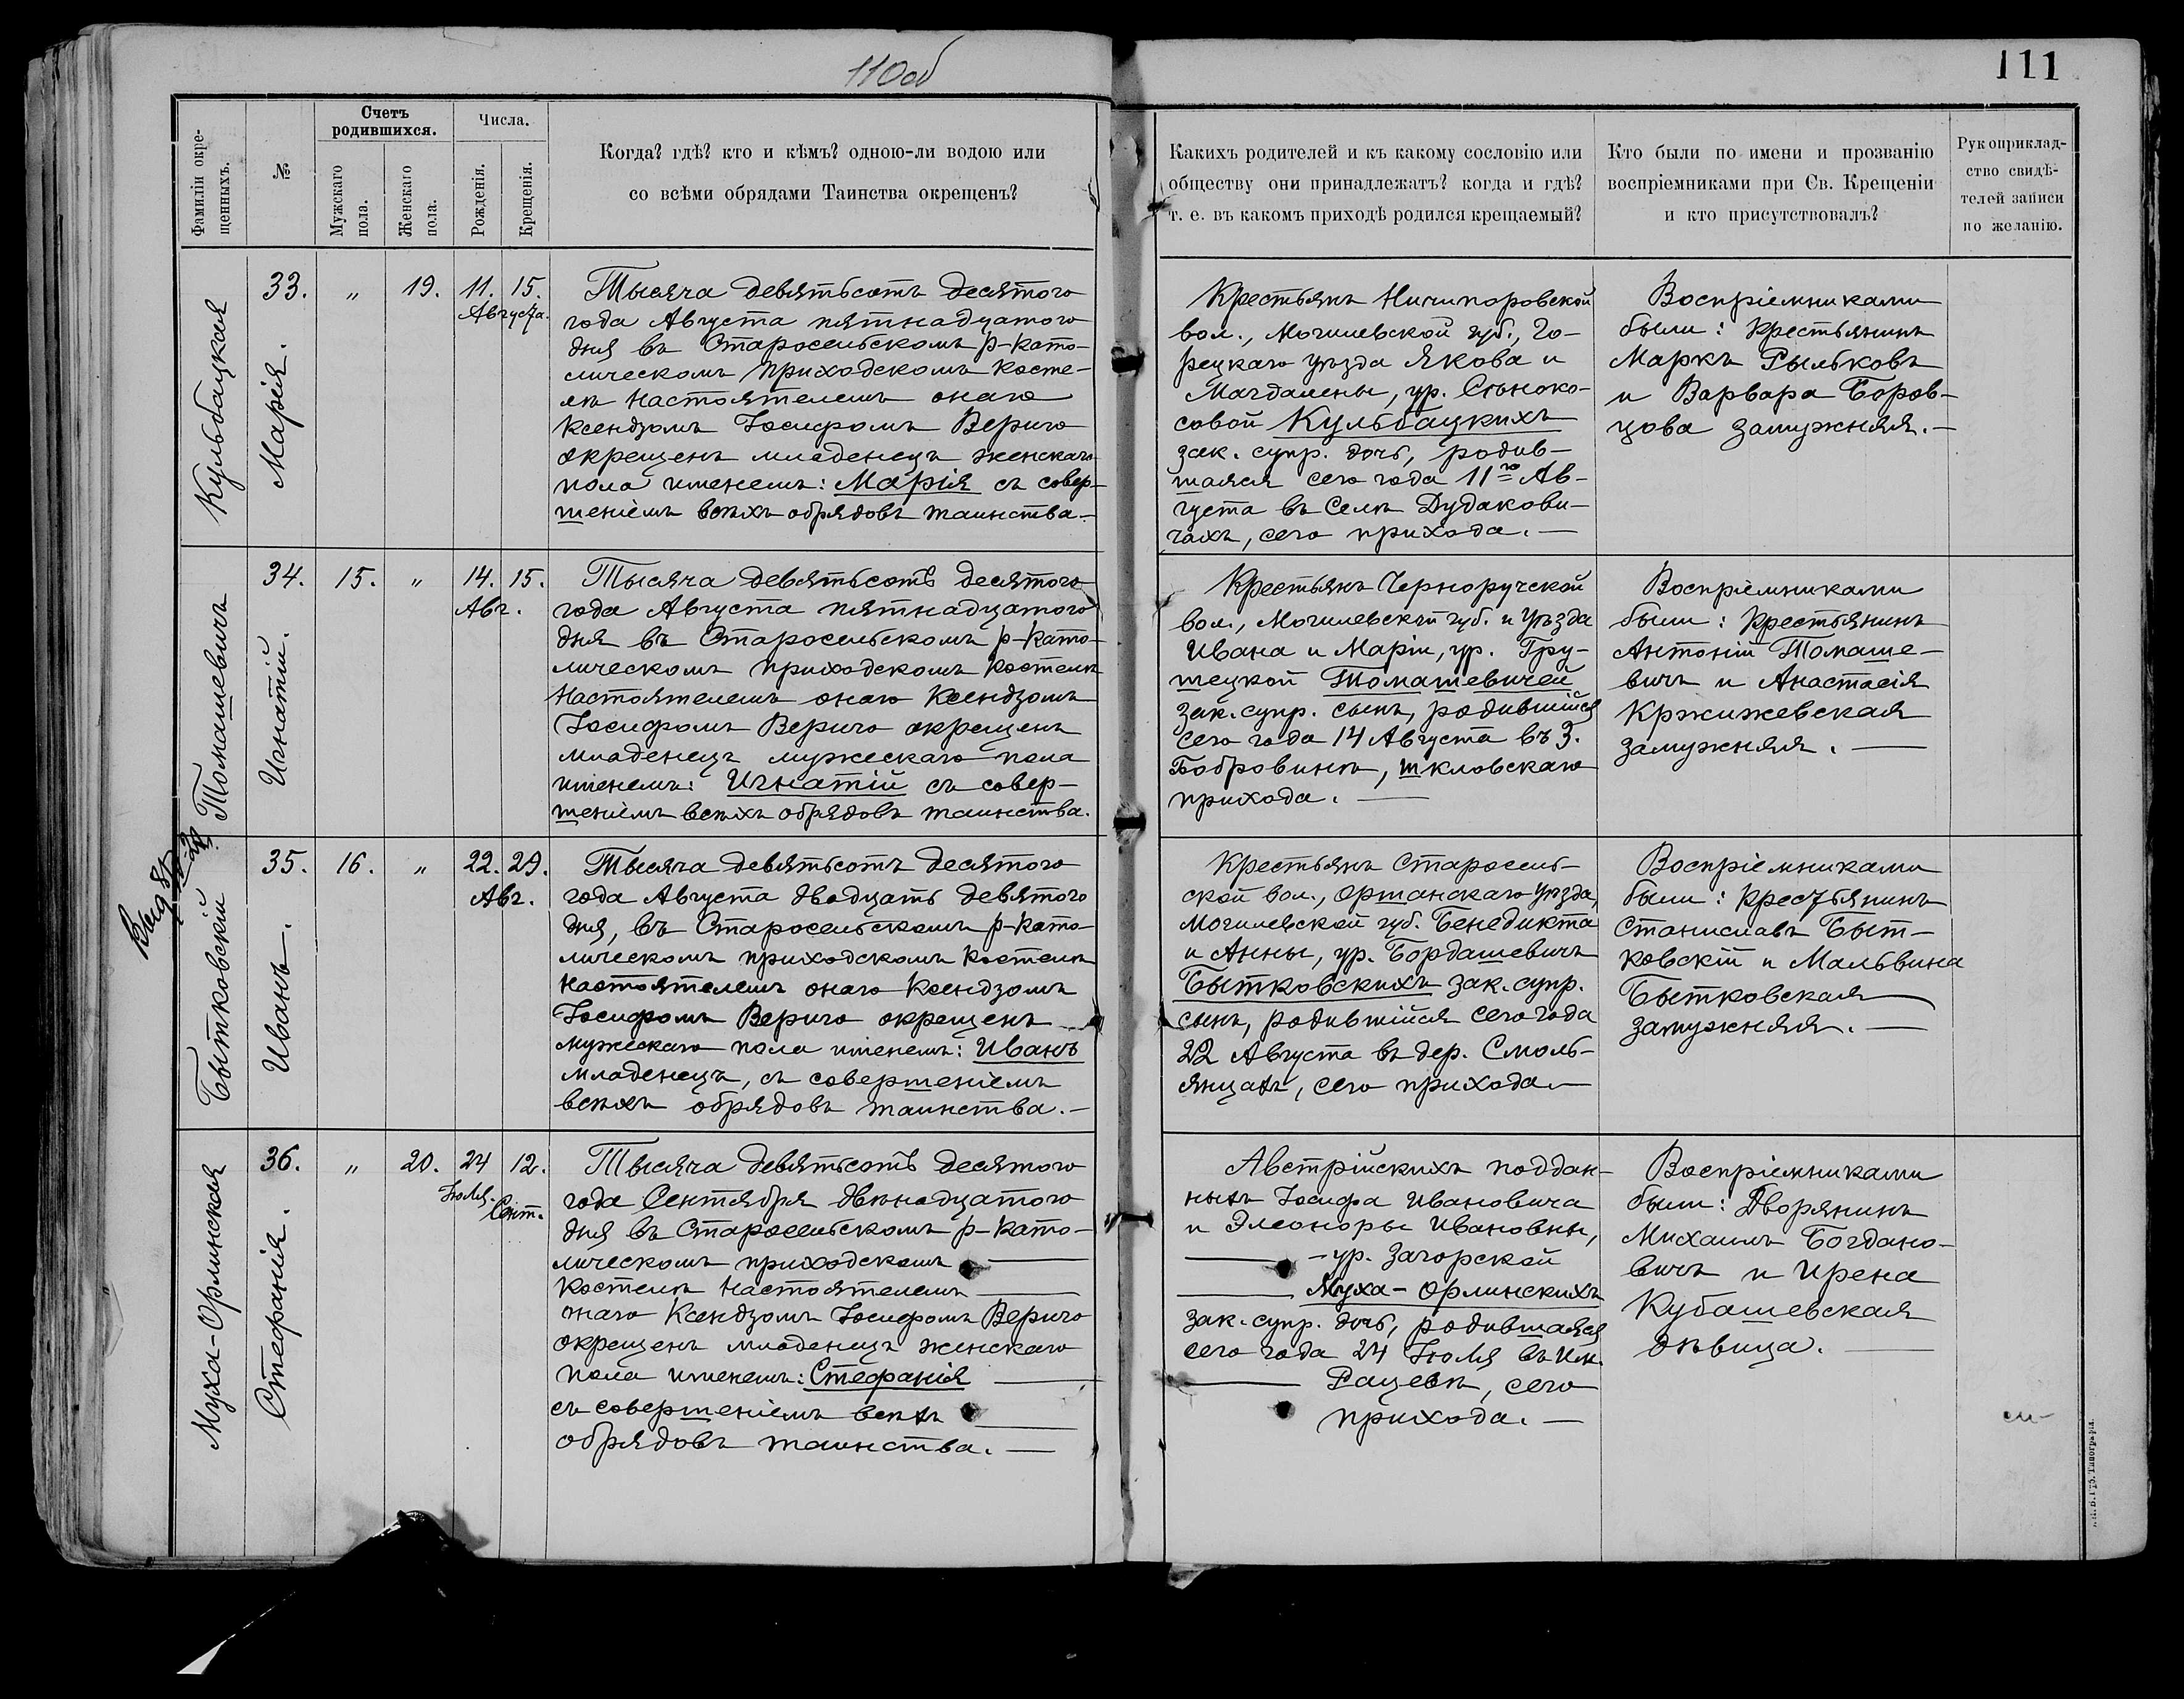 110об
111
Фамиліи окре-
щенныхъ.
№
Счетъ
родившихся.
Мужскаго
пола.
Женскаго
пола.
Числа.
Рожденія.
Крещенія.
Когда? гдѣ? кто и кѣмъ? одною-ли водою или
со всѣми обрядами Таинства окрещенъ?
Какихъ родителей и къ какому сословію или
обществу они принадлежатъ? когда и гдѣ?
т. е. въ какомъ приходѣ родился крещаемый?
Кто были по имени и прозванію
воспріемниками при Св. Крещеніи
и кто присутствовалъ?
Рукоприклад-
ство свидѣ-
телей записи
по желанію.
Кульбацкая
33.
Марія.
"
19.
11. 15.
Августа.
Тысяча девятьсотъ десятого
года Августа пятнадцатого
дня въ Старосельскомъ р-като-
лическомъ приходскомъ косте-
лѣ Настоятелемъ онаго
Ксендзомъ Іосифомъ Вериго
окрещенъ младенецъ женскаго
пола именемъ: Марія съ совер-
шеніемъ всѣхъ обрядовъ таинства.-
Крестьянъ Ничипоровской
вол., Могилевской губ., Го-
рецкаго уѣзда Якова и
Магдалены, ур. Сѣноко-
совой Кульбацкихъ
зак. супр. дочь, родив-
шаяся сего года 11го Ав-
густа въ Селѣ Дудакови-
чахъ, сего прихода. —
Воспріемниками
были: Крестьянинъ
Маркъ Рыльковъ
и Варвара Боров-
цова замужняя. —
Томашевичъ
34.
Игнатій.
15.
"
14. 15.
Авг.
Тысяча девятьсотъ десятого
года Августа пятнадцатого
дня въ Старосельскомъ р-като-
лическомъ приходскомъ костелѣ
Настоятелемъ онаго Ксендзомъ
Іосифомъ Вериго окрещенъ
младенецъ мужескаго пола
именемъ: Игнатій съ совер-
шеніемъ всѣхъ обрядовъ таинства.
Крестьянъ Черноручской
вол., Могилевской губ. и Уѣзда
Ивана и Маріи, ур. Гру-
шецкой Томашевичей
зак. супр. сынъ, родившійся
сего года 14 Августа въ З.
Бобровинѣ, Шкловскаго
прихода. —
Воспріемниками
были: Крестьянинъ
Антоній Томаше-
вичъ и Анастасія
Кржижевская
замужняя. —
Бытковскій
35.
Иванъ.
16.
"
22. 29.
Авг.
Тысяча девятьсотъ десятого
года Августа двадцать девятого
дня, въ Старосельскомъ р-като-
лическомъ приходскомъ костелѣ
Настоятелемъ онаго Ксендзомъ
Іосифомъ Вериго окрещенъ
мужескаго пола именемъ: Иванъ
младенецъ, съ совершеніемъ
всѣхъ обрядовъ таинства. —
Крестьянъ Старосель-
ской вол., Оршанскаго Уѣзда,
Могилевской губ. Бенедикта
и Анны, ур. Бордашевичъ
Бытковскихъ зак. супр.
сынъ, родившійся сего года
22 Августа въ дер. Смоль-
янцахъ, сего прихода. —
Воспріемниками
были: Крестьянинъ
Станиславъ Быт-
ковскій и Мальвина
Бытковская
замужняя. —
Муха-Орлинская
36.
Стефанія.
"
20.
24 12.
Іюля.
Сент.
Тысяча девятьсотъ десятого
года Сентября двѣнадцатого
дня въ Старосельскомъ р-като-
лическомъ приходскомъ —
костелѣ Настоятелемъ —
онаго Ксендзомъ Іосифомъ Вериго
окрещенъ младенецъ женскаго
пола именемъ: Стефанія —
съ совершеніемъ всѣхъ —
обрядовъ таинства. —
Австрійскихъ поддан-
ныхъ Іосифа Ивановича
и Элеоноры Ивановны,
— ур. Загорской
— Муха-Орлинскихъ
зак. супр. дочь, родившаяся
сего года 24 Іюля въ Им.
— Рацевѣ, сего
прихода. —
Воспріемниками
были: Дворянинъ
Михаилъ Богдано-
вичъ и Ирена
Кубашевская
дѣвица. —